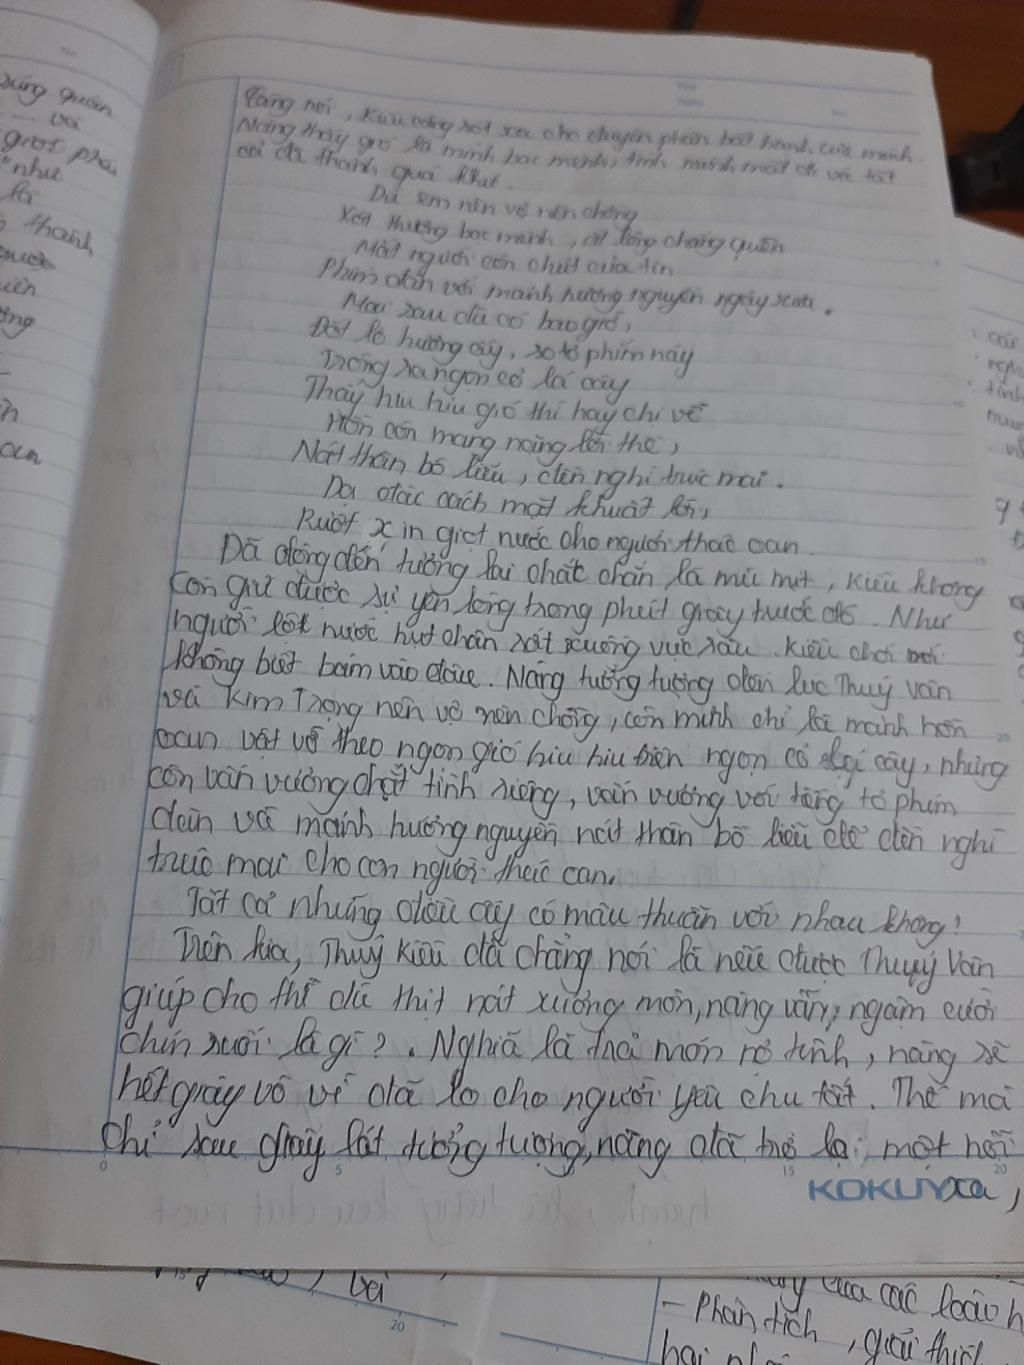 xứng quân
vai
giọt phải
"như
là
thanh
nước
Càng nói, Kiều càng xót xa cho duyên phận bất hạnh của mình.
Nàng thấy giờ là mình bạc mệnh, tình mình mất đi và tất
cả đã thành quá khứ.
Dù em nên vợ nên chồng
Xót thương bạc mệnh, ắt lòng chẳng quên
Mất người còn chút của tin
Phím đàn với mảnh hương nguyền ngày xưa.
Mai sau dù có bao giờ,
Đốt lò hương ấy, so tơ phím này
Trông ra ngọn cỏ lá cây
Thấy hiu hiu gió thì hay chị về
Hồn còn mang nặng lời thề,
Nát thân bồ liễu, đền nghì trúc mai.
Dạ đài cách mặt khuất lời,
Rưới xin giọt nước cho người thác oan.
Đã động đến tương lai chắc chắn là mù mịt, Kiều không
còn giữ được sự yên lòng trong phút giây trước đó. Như
người lội nước hụt chân sát xuống vực sâu. Kiều chới với
không biết bám vào đâu. Nàng tưởng tượng đến lúc Thuý Vân
và Kim Trọng nên vợ nên chồng, còn mình chỉ là mảnh hồn
oan vật vờ theo ngọn gió hiu hiu trên ngọn cỏ lá cây, nhưng
còn vấn vương chặt tình riêng, vấn vương với từng tơ phím
đàn và mảnh hương nguyền nát thân bồ liễu để đền nghì
trúc mai cho con người thác oan.
Tất cả những điều ấy có mâu thuẫn với nhau không?
Trên kia, Thuý Kiều đã chẳng nói là nếu được Thuý Vân
giúp cho thì dù thịt nát xương mòn, nàng vẫn ngậm cười
chín suối là gì?. Nghĩa là trả món nợ tình, nàng sẽ
hết giày vò vì đã lo cho người yêu chu tất. Thế mà
chỉ sau giây lát tưởng tượng, nàng đã trở lại một nỗi
xa,
0 5 15 20
KOKUYO
vai
20
của các loài h
- Phân tích, giải thích